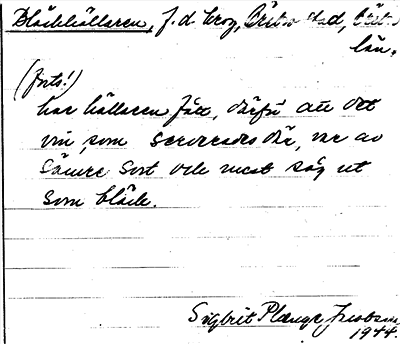 Bläckkällaren, f.d. krog, Örebro stad, Örebro
län.
(forts!)
har källaren fått, därför att det
vin, som serverades där, var av
sämre sort och mest såg ut
som bläck.
Sigbrit Plænge Jacobson
1944.